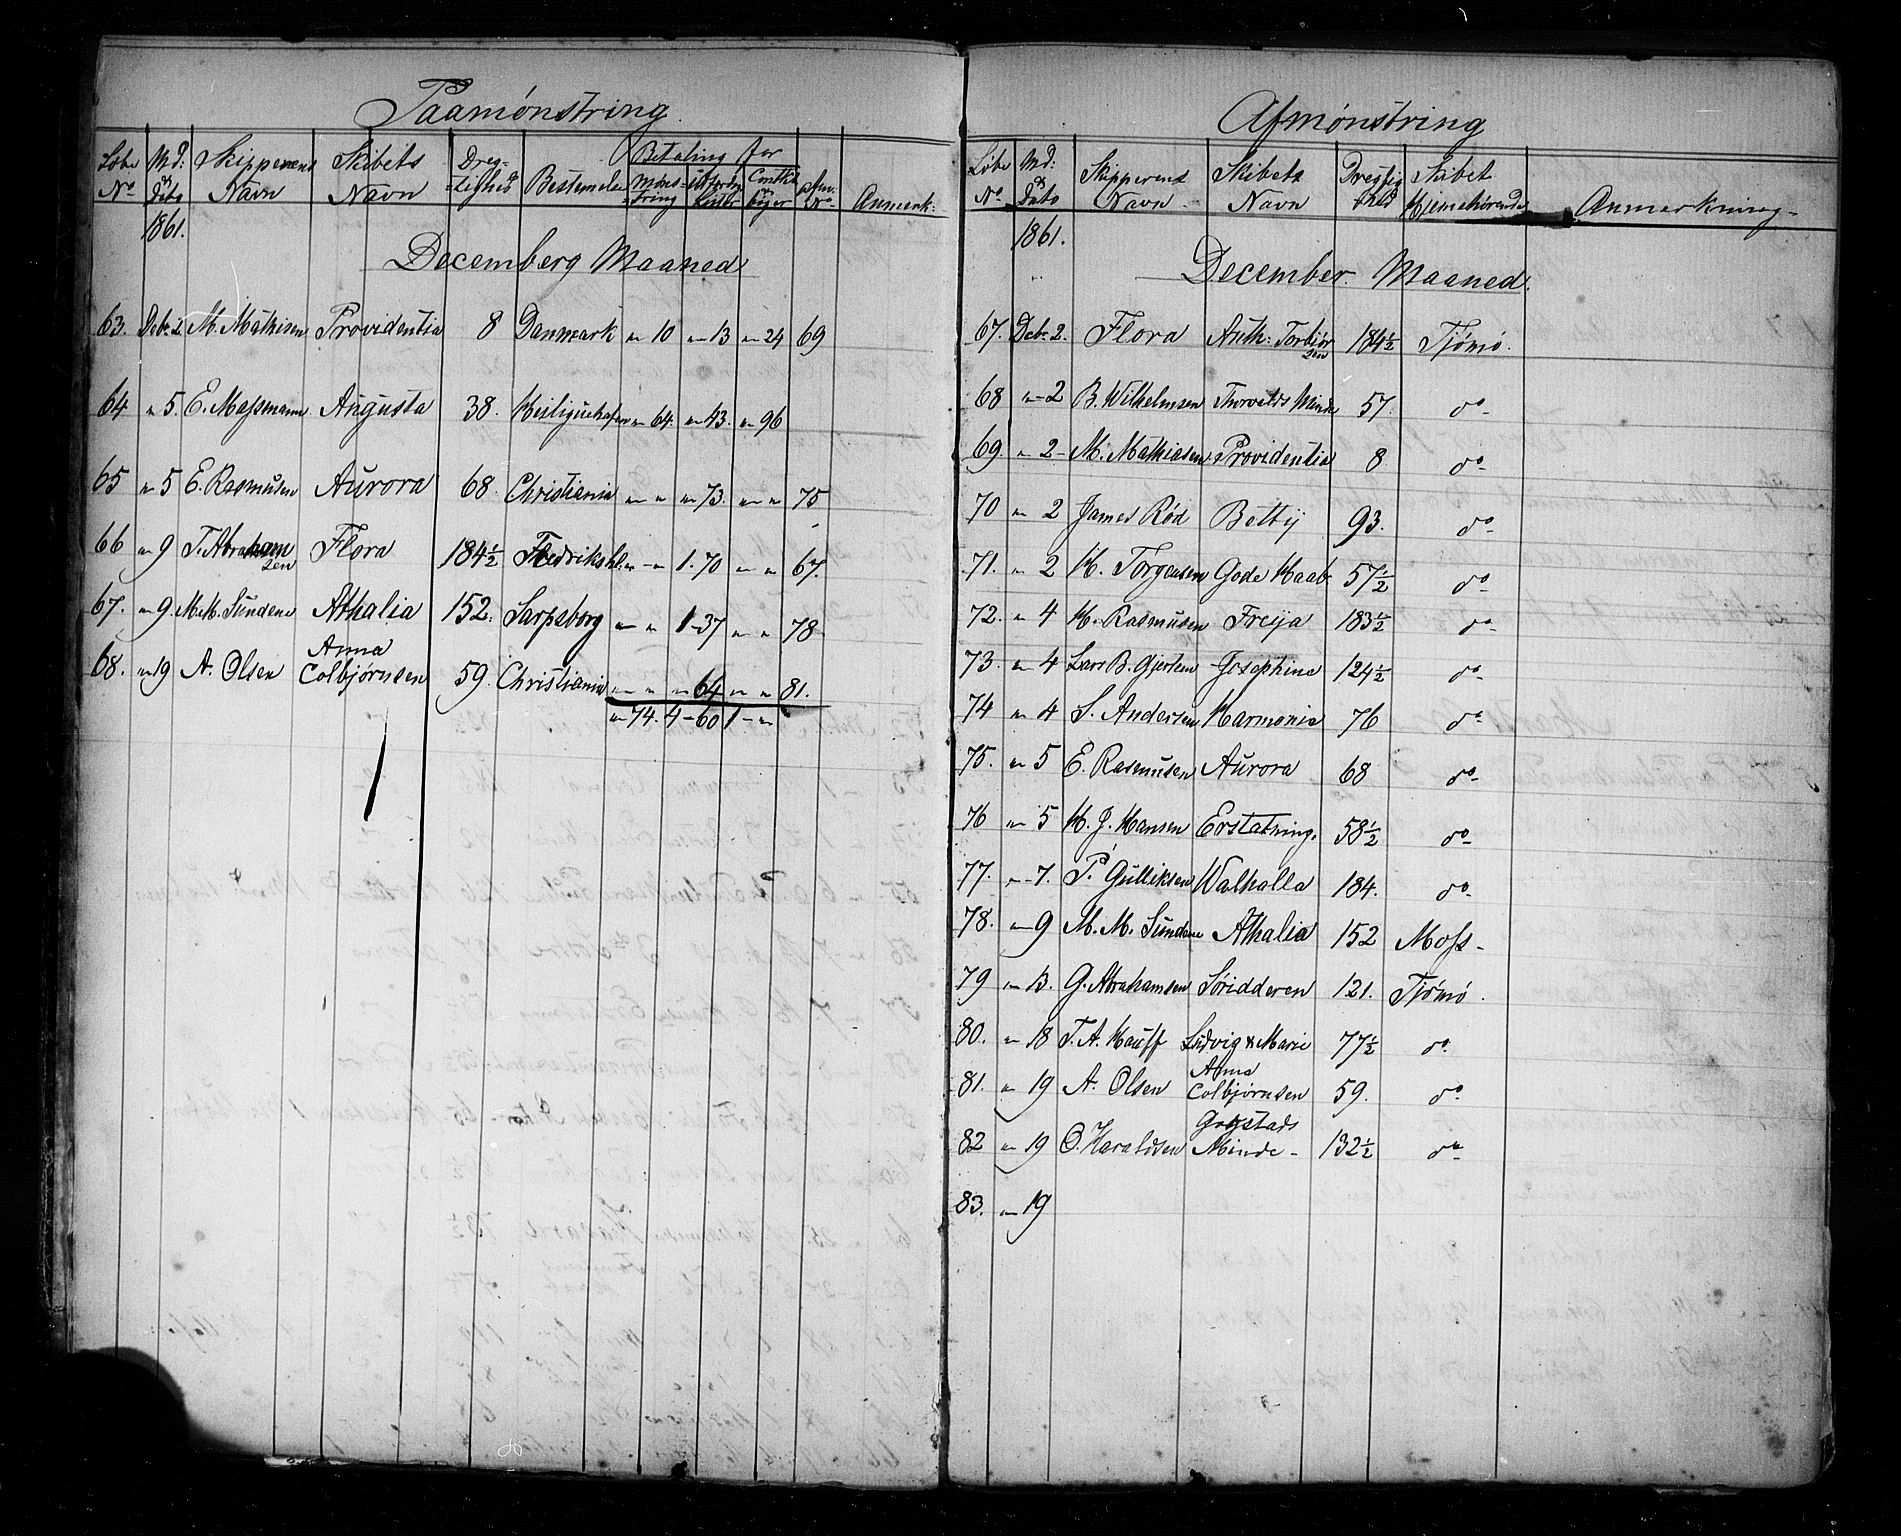 Paamönstring
Løbe No Md: & Dato Skipperens Navn Skibets Navn Dreg-tighed Bestemelse Betaling for Møns-tring Anm: No Anmerk:
1861.
Decemberg Maaned
63. Debr 2 M. Mathisen Providentia 8 Danmark " 10 " 13 " 24 69
64 " 5. E. Massmann Augusta 38. Heiliguehafen " 64. " 43. " 96
65 " 5 E. Rasmusen Aurora 68. Christiania " " " 73. " " 75
66 " 9 T. Abrahamsen Flora 184½ Fredriksh. " - 1.70 " " 67.
67. " 9. M. M. Sundene Athalia 152. Sarpsborg " " 1-37 " " 78
68. " 19 A. Olsen Anna Colbjørnsen 59. Christiania " " " 64 " " 81.
" 74. 4-60 1-"
Afmönstring
Løbe No Md: & Dato Skipperens Navn Skibets Navn Dregtighed Skibet Hjemehörende Anmerkning
1861.
December Maaned.
67. Debr 2. Flora Anth: Torbiørsen 184½ Tjömö.
68 " 2 B. Wilhelmsen Thorvalds Minde 57. do
69. " 2 M. Mathiasen Providentia 8 do
70 " 2 James Röd Bettÿ 93. do
71. " 2 H. Törgensen Gode Haab 57½ do
72. " 4 H. Rasmusen Freija 183½ do
73. " 4 Lars B. Gjertsen Josephine 124½ do
74 " 4 S. Andersen Harmonia 76 do
75. " 5 E. Rasmusen Aurora 68 do
76 " 5 H. J. Hansen Erstatning. 58½ do
77. " 7. P. Gulliksen Walhalla 184. do
78. " 9 M. M. Sundene Athalia 152 Moss-
79 " 13. G. Abrahamsen Søridderen 121. Tjömö.
80. " 18 T. A. Hauff Ludvig & Marie 77½ do
81. " 19 A. Olsen Anna Colbjørnsen 59. do
82 " 19 O. Haraldsen Minde- 132½ do
83. " 19